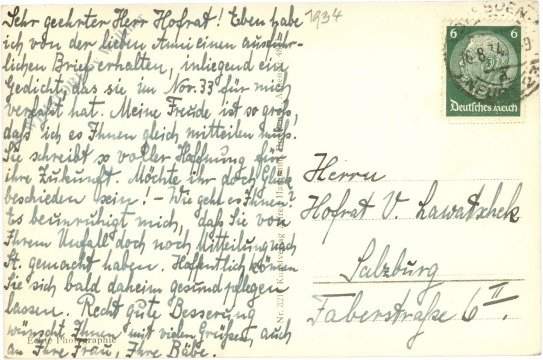 Sehr geehrter Herr Hofrat! Eben habe
ich von der lieben Anni einen ausführ-
lichen Brief erhalten, inliegend ein
Gedicht das sie im Nov. 33 für mich
verfaßt hat. Meine Freude ist so groß,
daß ich es Ihnen gleich mitteilen muß!
Sie schreibt so voller Hoffnung für
ihre Zukunft. Möchte ihr doch Glück
beschieden sein! – Wie geht es Ihnen?
Es beunruhigt mich, daß Sie von
Ihrem Unfall doch noch Mitteilung nach
St. gemacht haben. Hoffentlich können
Sie sich bald daheim gesund pflegen
lassen. Recht gute Besserung
wünscht Ihnen mit vielen Grüßen, auch
an Ihre Frau, Ihre Bäbe.
Echte Photographie
1934
6 6
Deutsches Reich
Herrn
Hofrat V. Lawatschek
Salzburg
Faberstraße 6 II.